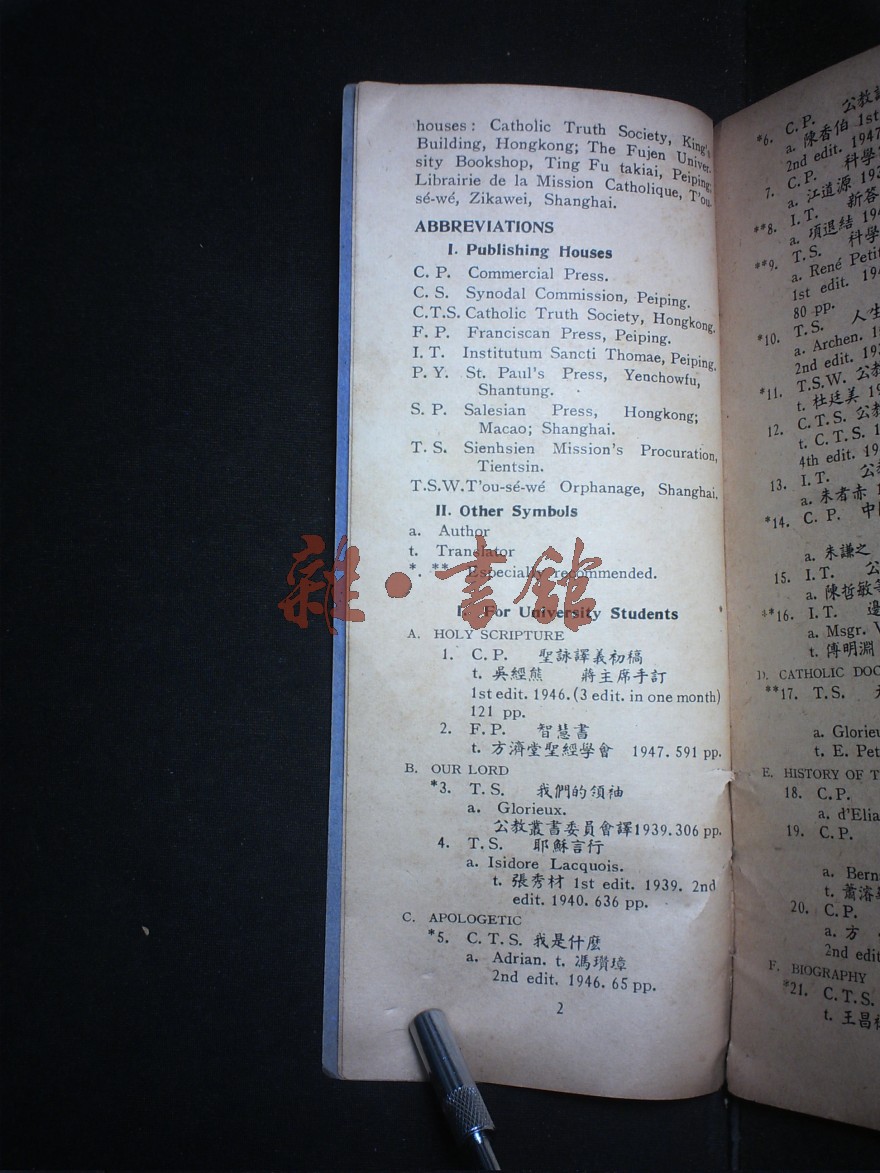 houses: Catholic Truth Society, King's
Building, Hongkong; The Fujen Univer-
sity Bookshop, Ting Fu takiai, Peiping;
Librairie de la Mission Catholique, T'ou-
sé-wé, Zikawei, Shanghai.
ABBREVIATIONS
I. Publishing Houses
C. P. Commercial Press.
C. S. Synodal Commission, Peiping.
C.T.S. Catholic Truth Society, Hongkong.
F. P. Franciscan Press, Peiping.
I. T. Institutum Sancti Thomae, Peiping.
P. Y. St. Paul's Press, Yenchowfu,
Shantung.
S. P. Salesian Press, Hongkong;
Macao; Shanghai.
T. S. Sienhsien Mission's Procuration,
Tientsin.
T.S.W. T'ou-sé-wé Orphanage, Shanghai.
II. Other Symbols
a. Author
t. Translator
*. ** Especially recommended.
I. For University Students
A. HOLY SCRIPTURE
1. C. P. 聖詠譯義初稿
t. 吳經熊 蔣主席手訂
1st edit. 1946. (3 edit. in one month)
121 pp.
2. F. P. 智慧書
t. 方濟堂聖經學會 1947. 591 pp.
B. OUR LORD
*3. T. S. 我們的領袖
a. Glorieux.
公教叢書委員會譯1939. 306 pp.
4. T. S. 耶穌言行
a. Isidore Lacquois.
t. 張秀材 1st edit. 1939. 2nd
edit. 1940. 636 pp.
C. APOLOGETIC
*5. C. T. S. 我是什麼
a. Adrian. t. 馮瓚璋
2nd edit. 1946. 65 pp.
2
*6. C. P. 公教
a. 陳香伯 1st
2nd edit. 1947
7. C. P. 科學
a. 江道源 19
**8. I. T. 新答
a. 項退結 19
**9. T. S. 科學
a. René Petit
1st edit. 19
80 pp.
*10. T. S. 人生
a. Archen. 1
2nd edit. 19
*11. T.S.W. 公教
t. 杜廷美 1
12. C. T. S. 公教
t. C. T. S. 1
4th edit. 19
13. I. T. 公
a. 朱者赤
*14. C. P. 中
a. 朱謙之
15. I. T. 公
a. 陳哲敏
**16. I. T. 邊
a. Msgr. V
t. 傅明淵
D. CATHOLIC DOC
**17. T. S.
a. Glorieu
t. E. Pet
E. HISTORY OF T
18. C. P.
a. d'Elia
19. C. P.
a. Bern
t. 蕭濬
20. C. P.
a. 方
2nd edit
F. BIOGRAPHY
*21. C. T. S.
t. 王昌
雜·書館